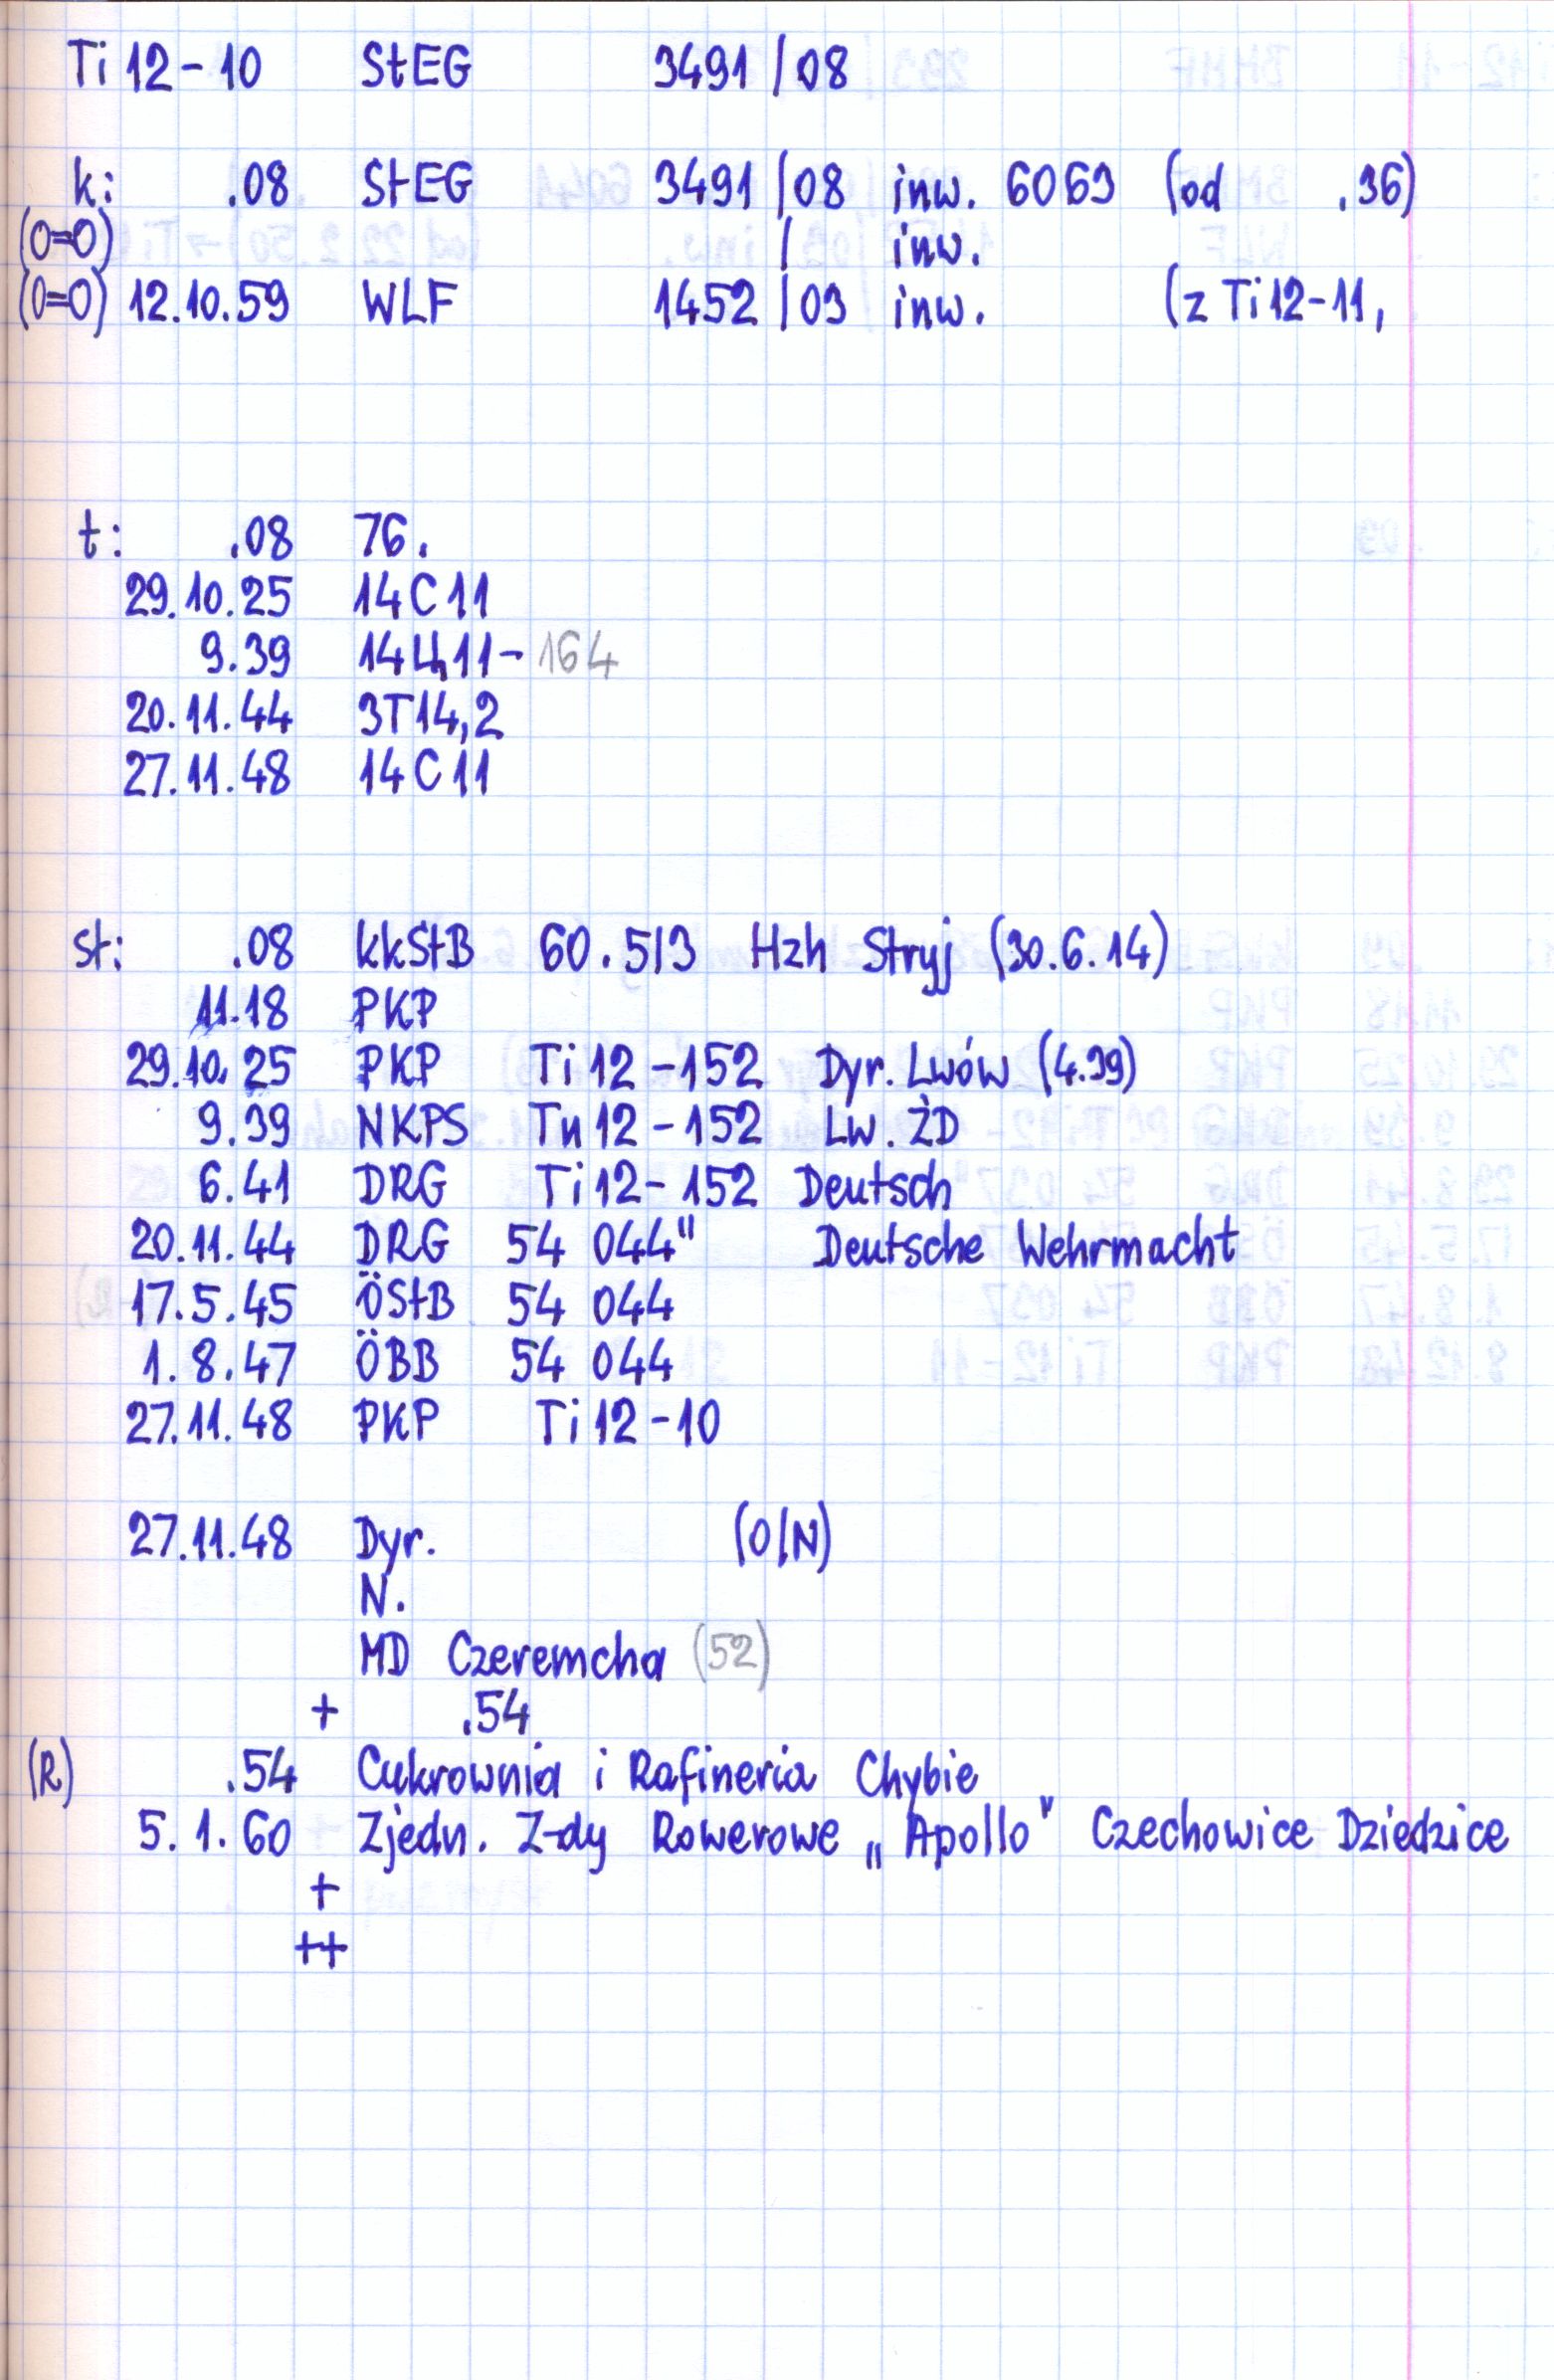 Ti 12-10 StEG 3491/08
k: .08 StEG 3491/08 inw. 6063 (od .36)
(O=O) / inw.
(O=O) 12.10.59 WLF 1452/03 inw. (z Ti 12-11,
t: .08 76.
29.10.25 14C11
9.39 14Ц11-164
20.11.44 3T14,2
27.11.48 14C11
st: .08 kkStB 60.513 Hzh Stryj (30.6.14)
11.18 PKP
29.10.25 PKP Ti 12-152 Dyr. Lwów (4.39)
9.39 NKPS Tu 12-152 Lw. ŻD
6.41 DRG Ti 12-152 Deutsch
20.11.44 DRG 54 044" Deutsche Wehrmacht
17.5.45 ÖStB 54 044
1.8.47 ÖBB 54 044
27.11.48 PKP Ti 12-10
27.11.48 Dyr. (O/N)
N.
MD Czeremcha (52)
+ .54
(R) .54 Cukrownia i Rafineria Chybie
5.1.60 Zjedn. Z-dy Rowerowe „Apollo" Czechowice Dziedzice
+
++